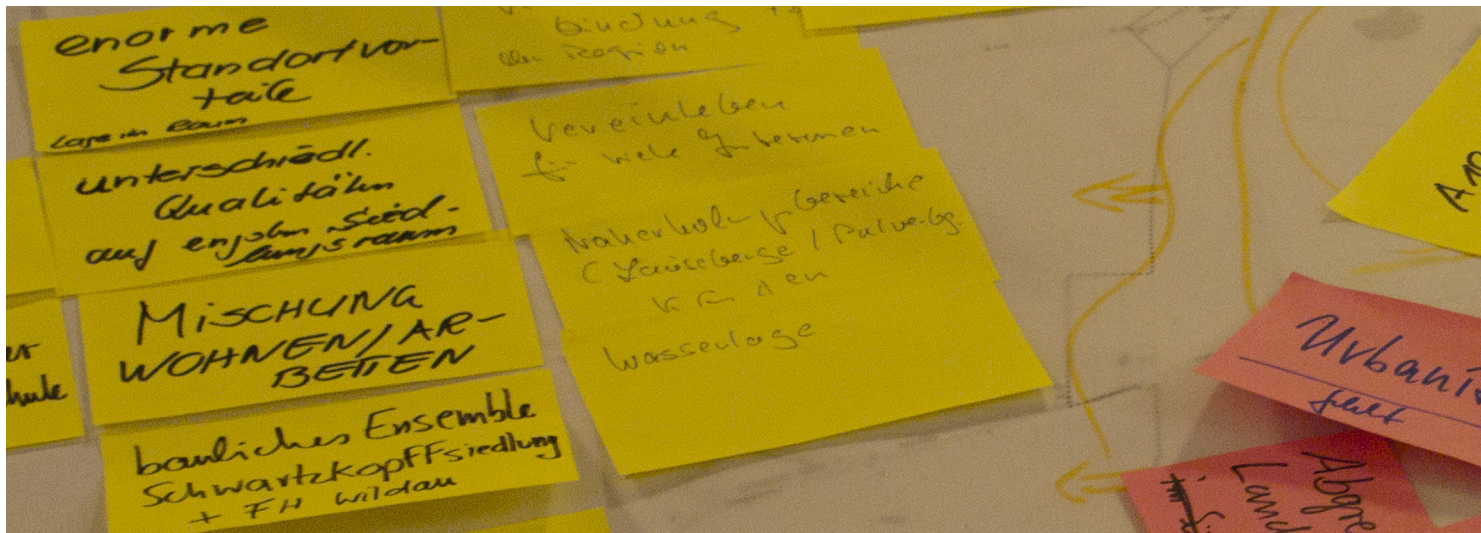 enorme
Standortvor-
teile
Lage im Raum
unterschiedl.
Qualitäten
auf engstem Sied-
lungsraum
MISCHUNG
WOHNEN/AR-
BEITEN
bauliches Ensemble
Schwartzkopffsiedlung
+ FH Wildau
bindung
Region
Vereinleben
für viele Interessen
Naherholungsbereiche
wasserlage
Urbani
fehlt
Abgre
Land